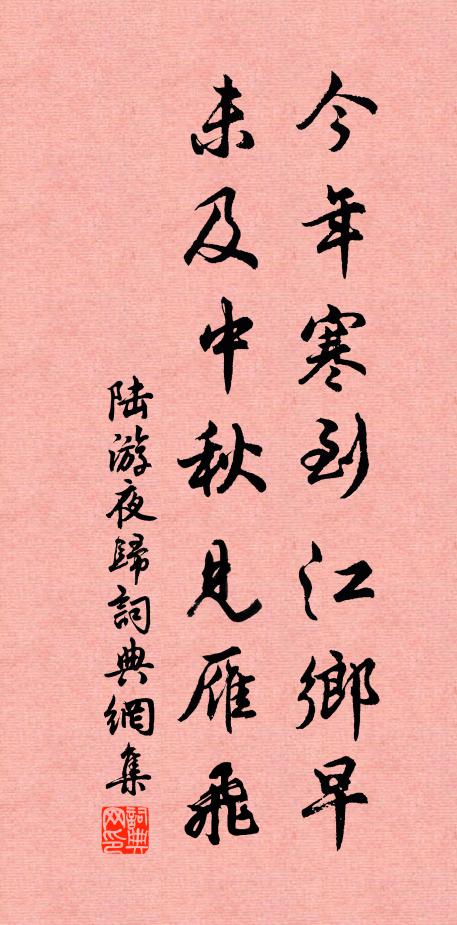 今年寒到江鄉早
未及中秋見雁飛
陆游夜歸詞典網集
詞典
网印